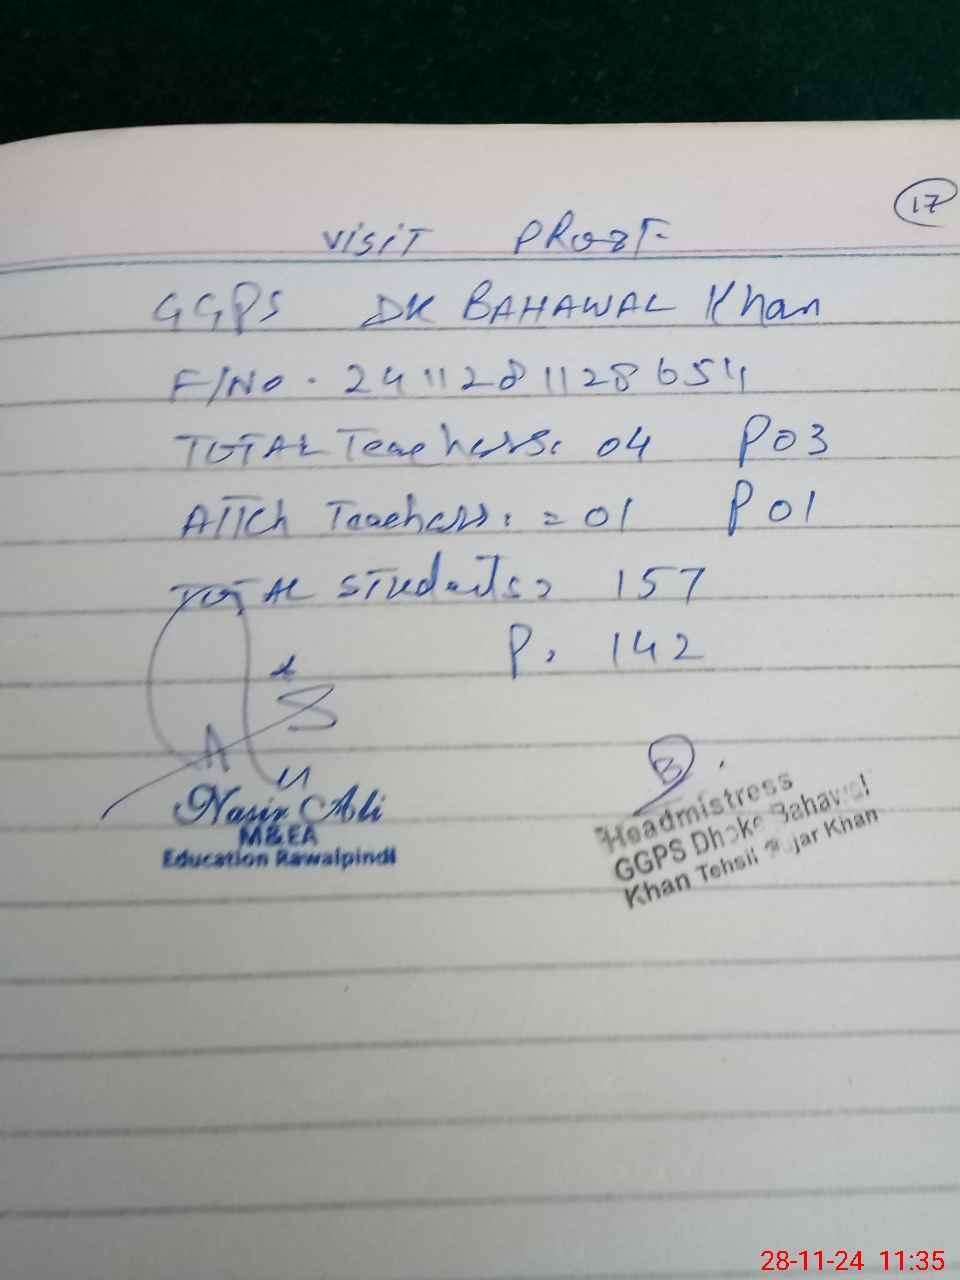 17
VISIT PROOF
GGPS DK BAHAWAL Khan
F/NO. 24112811286511
TOTAL Teachers: 04 P03
ATTCh Teachers: = 01 P01
TOTAL STudents= 157
P. 142
Nasir Ali
M&EA
Education Rawalpindi
Headmistress
GGPS Dhoke Bahawal
Khan Tehsil Gujar Khan
28-11-24 11:35